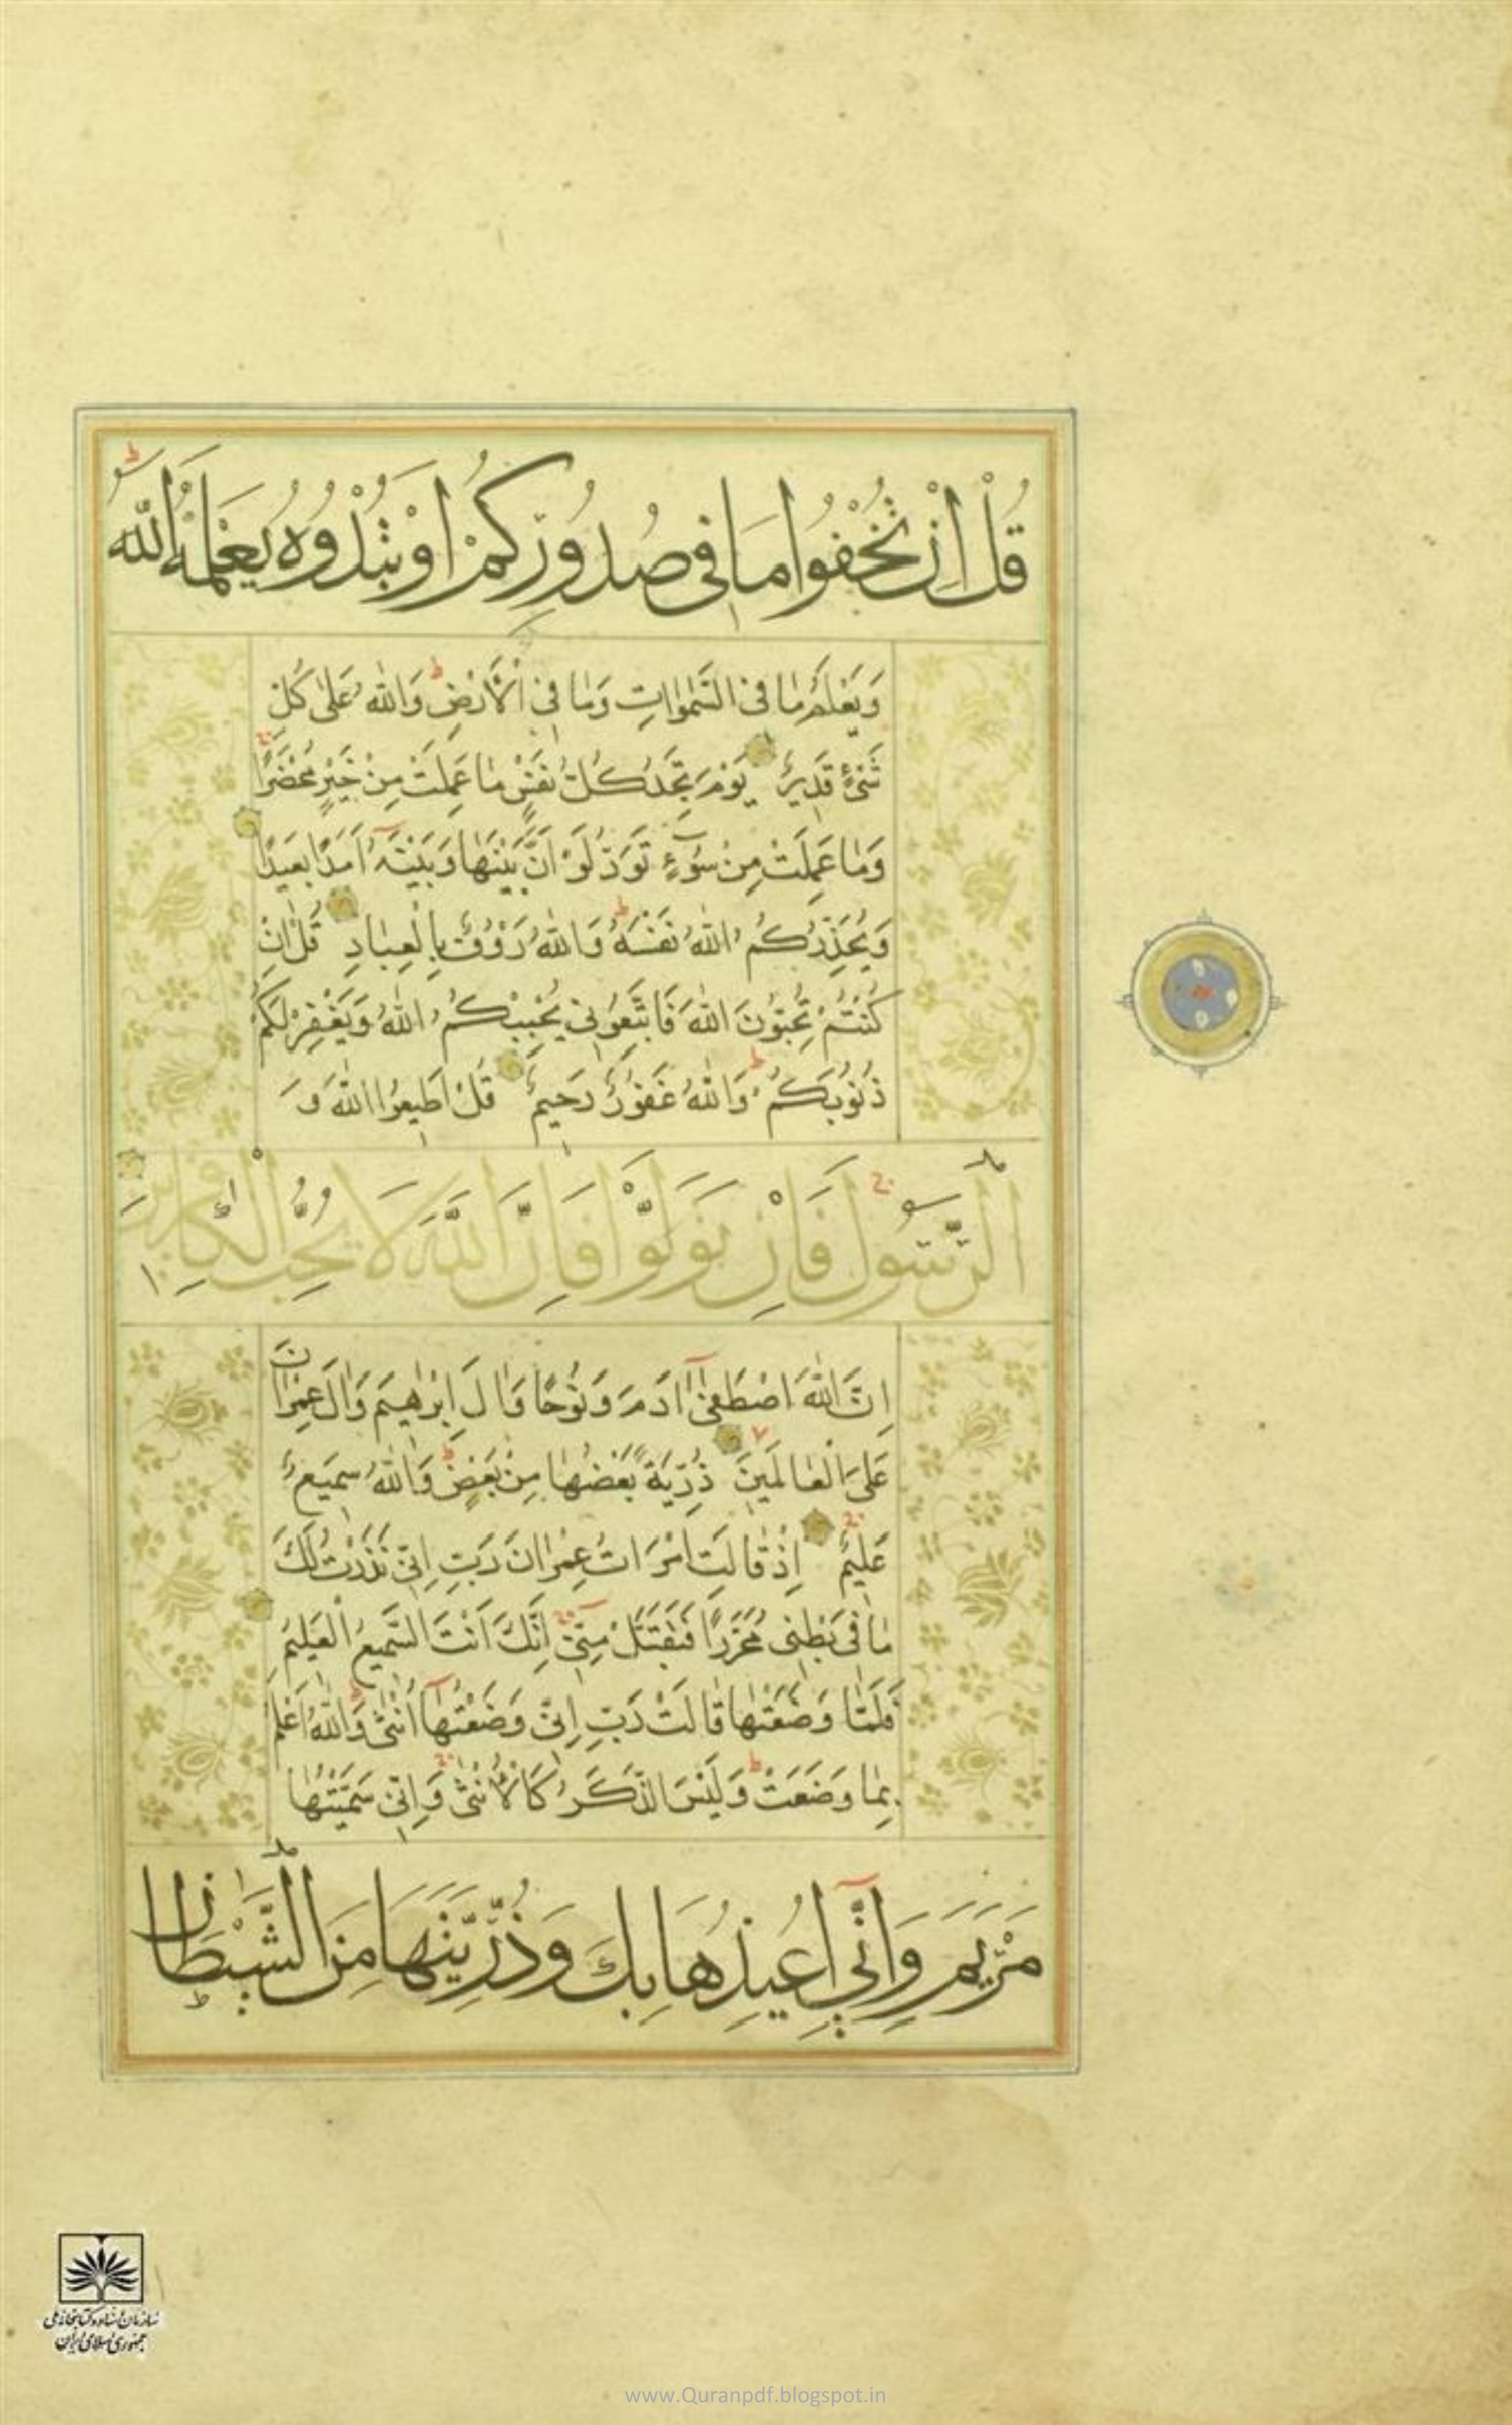 قُلْ اِنْ تُخْفُوا مَا فِی صُدُورِكُمْ اَوْ تُبْدُوهُ یَعْلَمْهُ اللّٰهُ ط
وَیَعْلَمُ مَا فِی السَّمٰوَاتِ وَمَا فِی الْاَرْضِ ط وَاللّٰهُ عَلٰی كُلِّ
شَیْءٍ قَدِیرٌ یَوْمَ تَجِدُ كُلُّ نَفْسٍ مَا عَمِلَتْ مِنْ خَیْرٍ مُحْضَرًا
وَمَا عَمِلَتْ مِنْ سُوٓءٍ تَوَدُّ لَوْ اَنَّ بَیْنَهَا وَبَیْنَهُ اَمَدًا بَعِیدًا
وَیُحَذِّرُكُمُ اللّٰهُ نَفْسَهُ ط وَاللّٰهُ رَؤُوفٌ بِالْعِبَادِ قُلْ اِنْ
كُنْتُمْ تُحِبُّوْنَ اللّٰهَ فَاتَّبِعُوْنِی یُحْبِبْكُمُ اللّٰهُ وَیَغْفِرْ لَكُمْ
ذُنُوْبَكُمْ ط وَاللّٰهُ غَفُوْرٌ رَحِیمٌ قُلْ اَطِیعُوا اللّٰهَ وَ
الرَّسُولَ فَاِنْ تَوَلَّوْا فَاِنَّ اللّٰهَ لَا یُحِبُّ الْكَافِرِینَ
اِنَّ اللّٰهَ اصْطَفٰیٓ اٰدَمَ وَنُوْحًا وَاٰلَ اِبْرٰهِیمَ وَاٰلَ عِمْرَانَ
عَلَی الْعَالَمِینَ ذُرِّیَةً بَعْضُهَا مِنْ بَعْضٍ ط وَاللّٰهُ سَمِیعٌ
عَلِیمٌ اِذْ قَالَتِ امْرَاَتُ عِمْرَانَ رَبِّ اِنِّی نَذَرْتُ لَكَ
مَا فِی بَطْنِی مُحَرَّرًا فَتَقَبَّلْ مِنِّیٓ اِنَّكَ اَنْتَ السَّمِیعُ الْعَلِیمُ
فَلَمَّا وَضَعَتْهَا قَالَتْ رَبِّ اِنِّی وَضَعْتُهَآ اُنْثٰی ط وَاللّٰهُ اَعْلَمُ
بِمَا وَضَعَتْ ط وَلَیْسَ الذَّكَرُ كَالْاُنْثٰی وَاِنِّی سَمَّیْتُهَا
مَرْیَمَ وَاِنِّیٓ اُعِیذُهَا بِكَ وَذُرِّیَّتَهَا مِنَ الشَّیْطَانِ
سازمان اسناد و کتابخانه ملی
جمهوری اسلامی ایران
www.Quranpdf.blogspot.in